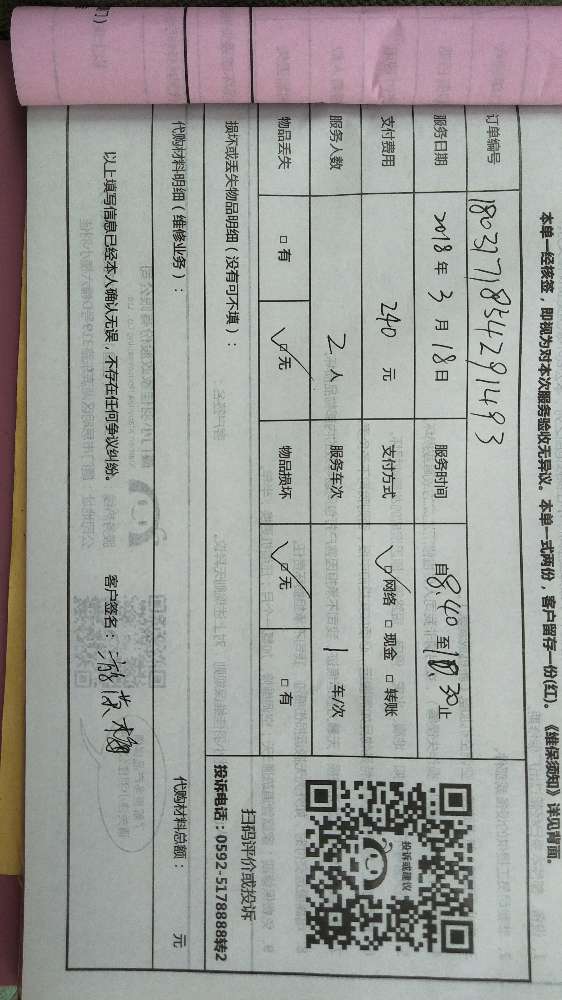 本单一经核签，即视为对本次服务验收无异议。本单一式两份，客户留存一份(红)。《维保须知》详见背面。
订单编号 1803171854291493
服务日期 2018年3月18日 服务时间 自8.40至10.30止
支付费用 240元 支付方式 ☑网络 □现金 □转账
服务人数 2人 服务车次 1车/次
物品丢失 □有 ☑无 物品损坏 ☑无 □有
损坏或丢失物品明细（没有可不填）：
投诉或建议
扫码评价或投诉
投诉电话：0592-5178888转2
代购材料明细（维修业务）： 代购材料总额： 元
以上填写信息已经本人确认无误，不存在任何争议纠纷。 客户签名：